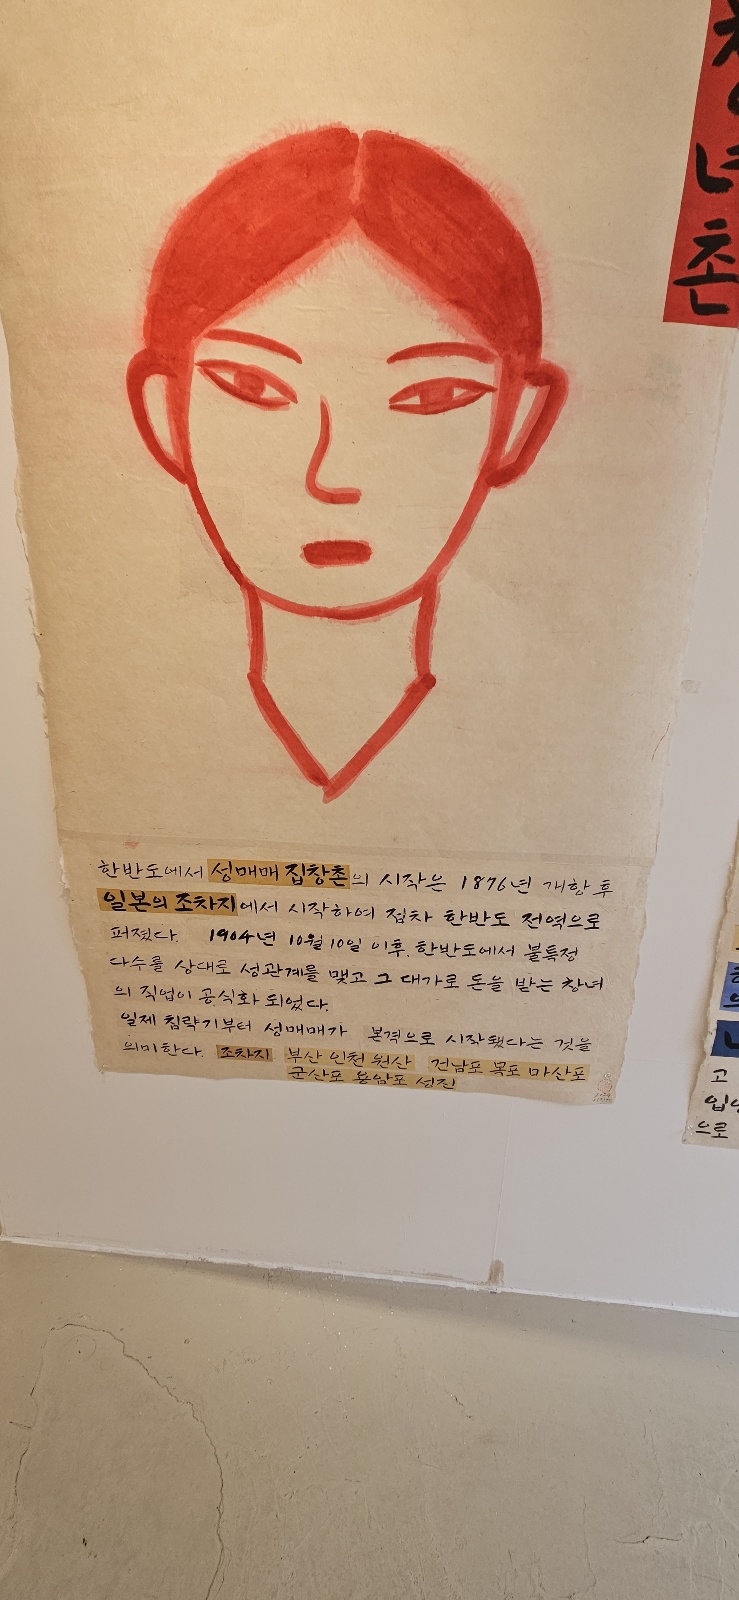 년
촌
한반도에서 성매매 집창촌의 시작은 1876년 개항 후
일본의 조차지에서 시작하여 점차 한반도 전역으로
퍼졌다. 1904년 10월 10일 이후, 한반도에서 불특정
다수를 상대로 성관계를 맺고 그 대가로 돈을 받는 창녀
의 직업이 공식화 되었다.
일제 침략기부터 성매매가 본격으로 시작됐다는 것을
의미한다. 조차지 부산 인천 원산 건남포 목포 마산포
군산포 용암포 성진
고
으로